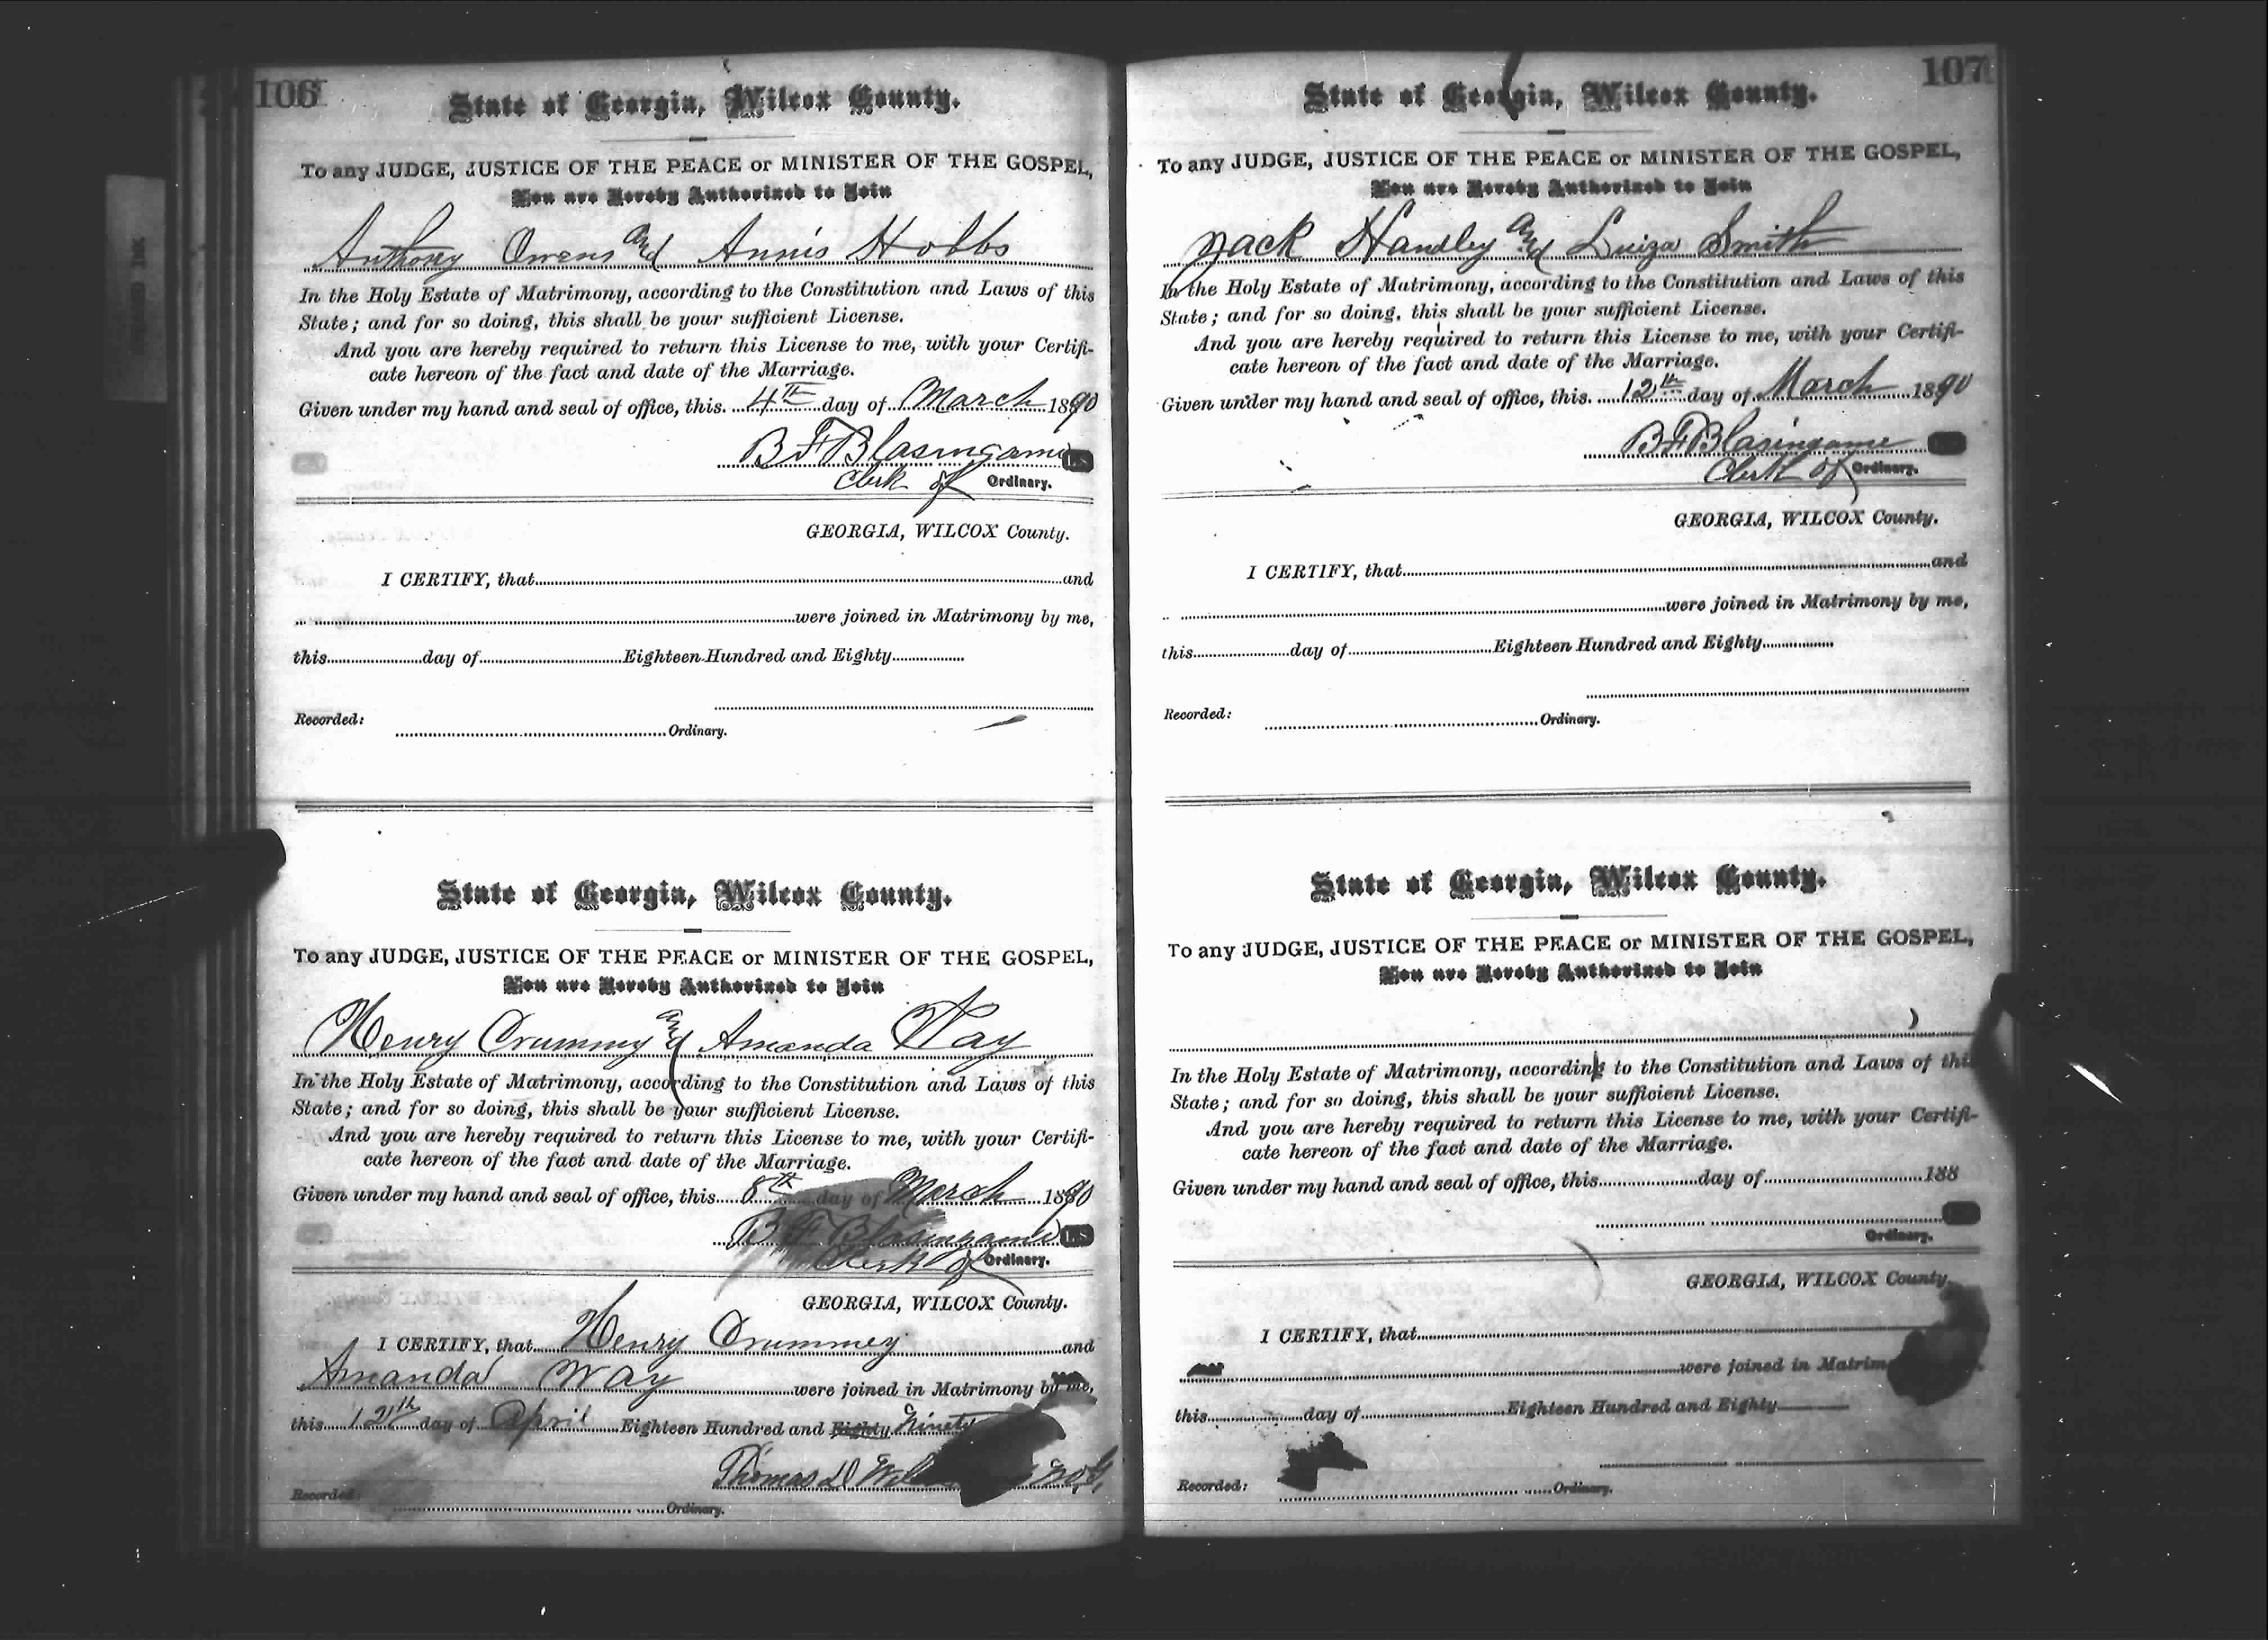 106
State of Georgia, Wilcox County.
To any JUDGE, JUSTICE OF THE PEACE or MINISTER OF THE GOSPEL,
You are Hereby Authorized to Join
Anthony Owens and Annis Hobbs
In the Holy Estate of Matrimony, according to the Constitution and Laws of this
State; and for so doing, this shall be your sufficient License.
And you are hereby required to return this License to me, with your Certifi-
cate hereon of the fact and date of the Marriage.
Given under my hand and seal of office, this 4th day of March 1890
B F Blasingame LS
Clerk of Ordinary.
GEORGIA, WILCOX County.
I CERTIFY, that and
were joined in Matrimony by me,
this day of Eighteen Hundred and Eighty
Recorded:
Ordinary.
State of Georgia, Wilcox County.
To any JUDGE, JUSTICE OF THE PEACE or MINISTER OF THE GOSPEL,
You are Hereby Authorized to Join
Henry Crummy and Amanda Way
In the Holy Estate of Matrimony, according to the Constitution and Laws of this
State; and for so doing, this shall be your sufficient License.
And you are hereby required to return this License to me, with your Certifi-
cate hereon of the fact and date of the Marriage.
Given under my hand and seal of office, this 8th day of March 1890
B F Blasingame LS
Clerk of Ordinary.
GEORGIA, WILCOX County.
I CERTIFY, that Henry Crummey and
Amanda Way were joined in Matrimony by me,
this 12th day of April Eighteen Hundred and Eighty Ninety
Thomas D
Recorded:
Ordinary.
107
State of Georgia, Wilcox County.
To any JUDGE, JUSTICE OF THE PEACE or MINISTER OF THE GOSPEL,
You are Hereby Authorized to Join
Jack Handley and Luiza Smith
In the Holy Estate of Matrimony, according to the Constitution and Laws of this
State; and for so doing, this shall be your sufficient License.
And you are hereby required to return this License to me, with your Certifi-
cate hereon of the fact and date of the Marriage.
Given under my hand and seal of office, this 12th day of March 1890
B F Blasingame
Clerk of Ordinary.
GEORGIA, WILCOX County.
I CERTIFY, that and
were joined in Matrimony by me,
this day of Eighteen Hundred and Eighty
Recorded:
Ordinary.
State of Georgia, Wilcox County.
To any JUDGE, JUSTICE OF THE PEACE or MINISTER OF THE GOSPEL,
You are Hereby Authorized to Join
In the Holy Estate of Matrimony, according to the Constitution and Laws of thi
State; and for so doing, this shall be your sufficient License.
And you are hereby required to return this License to me, with your Certifi-
cate hereon of the fact and date of the Marriage.
Given under my hand and seal of office, this day of 188
Ordinary.
GEORGIA, WILCOX County.
I CERTIFY, that
were joined in Matrim
this day of Eighteen Hundred and Eighty
Recorded:
Ordinary.